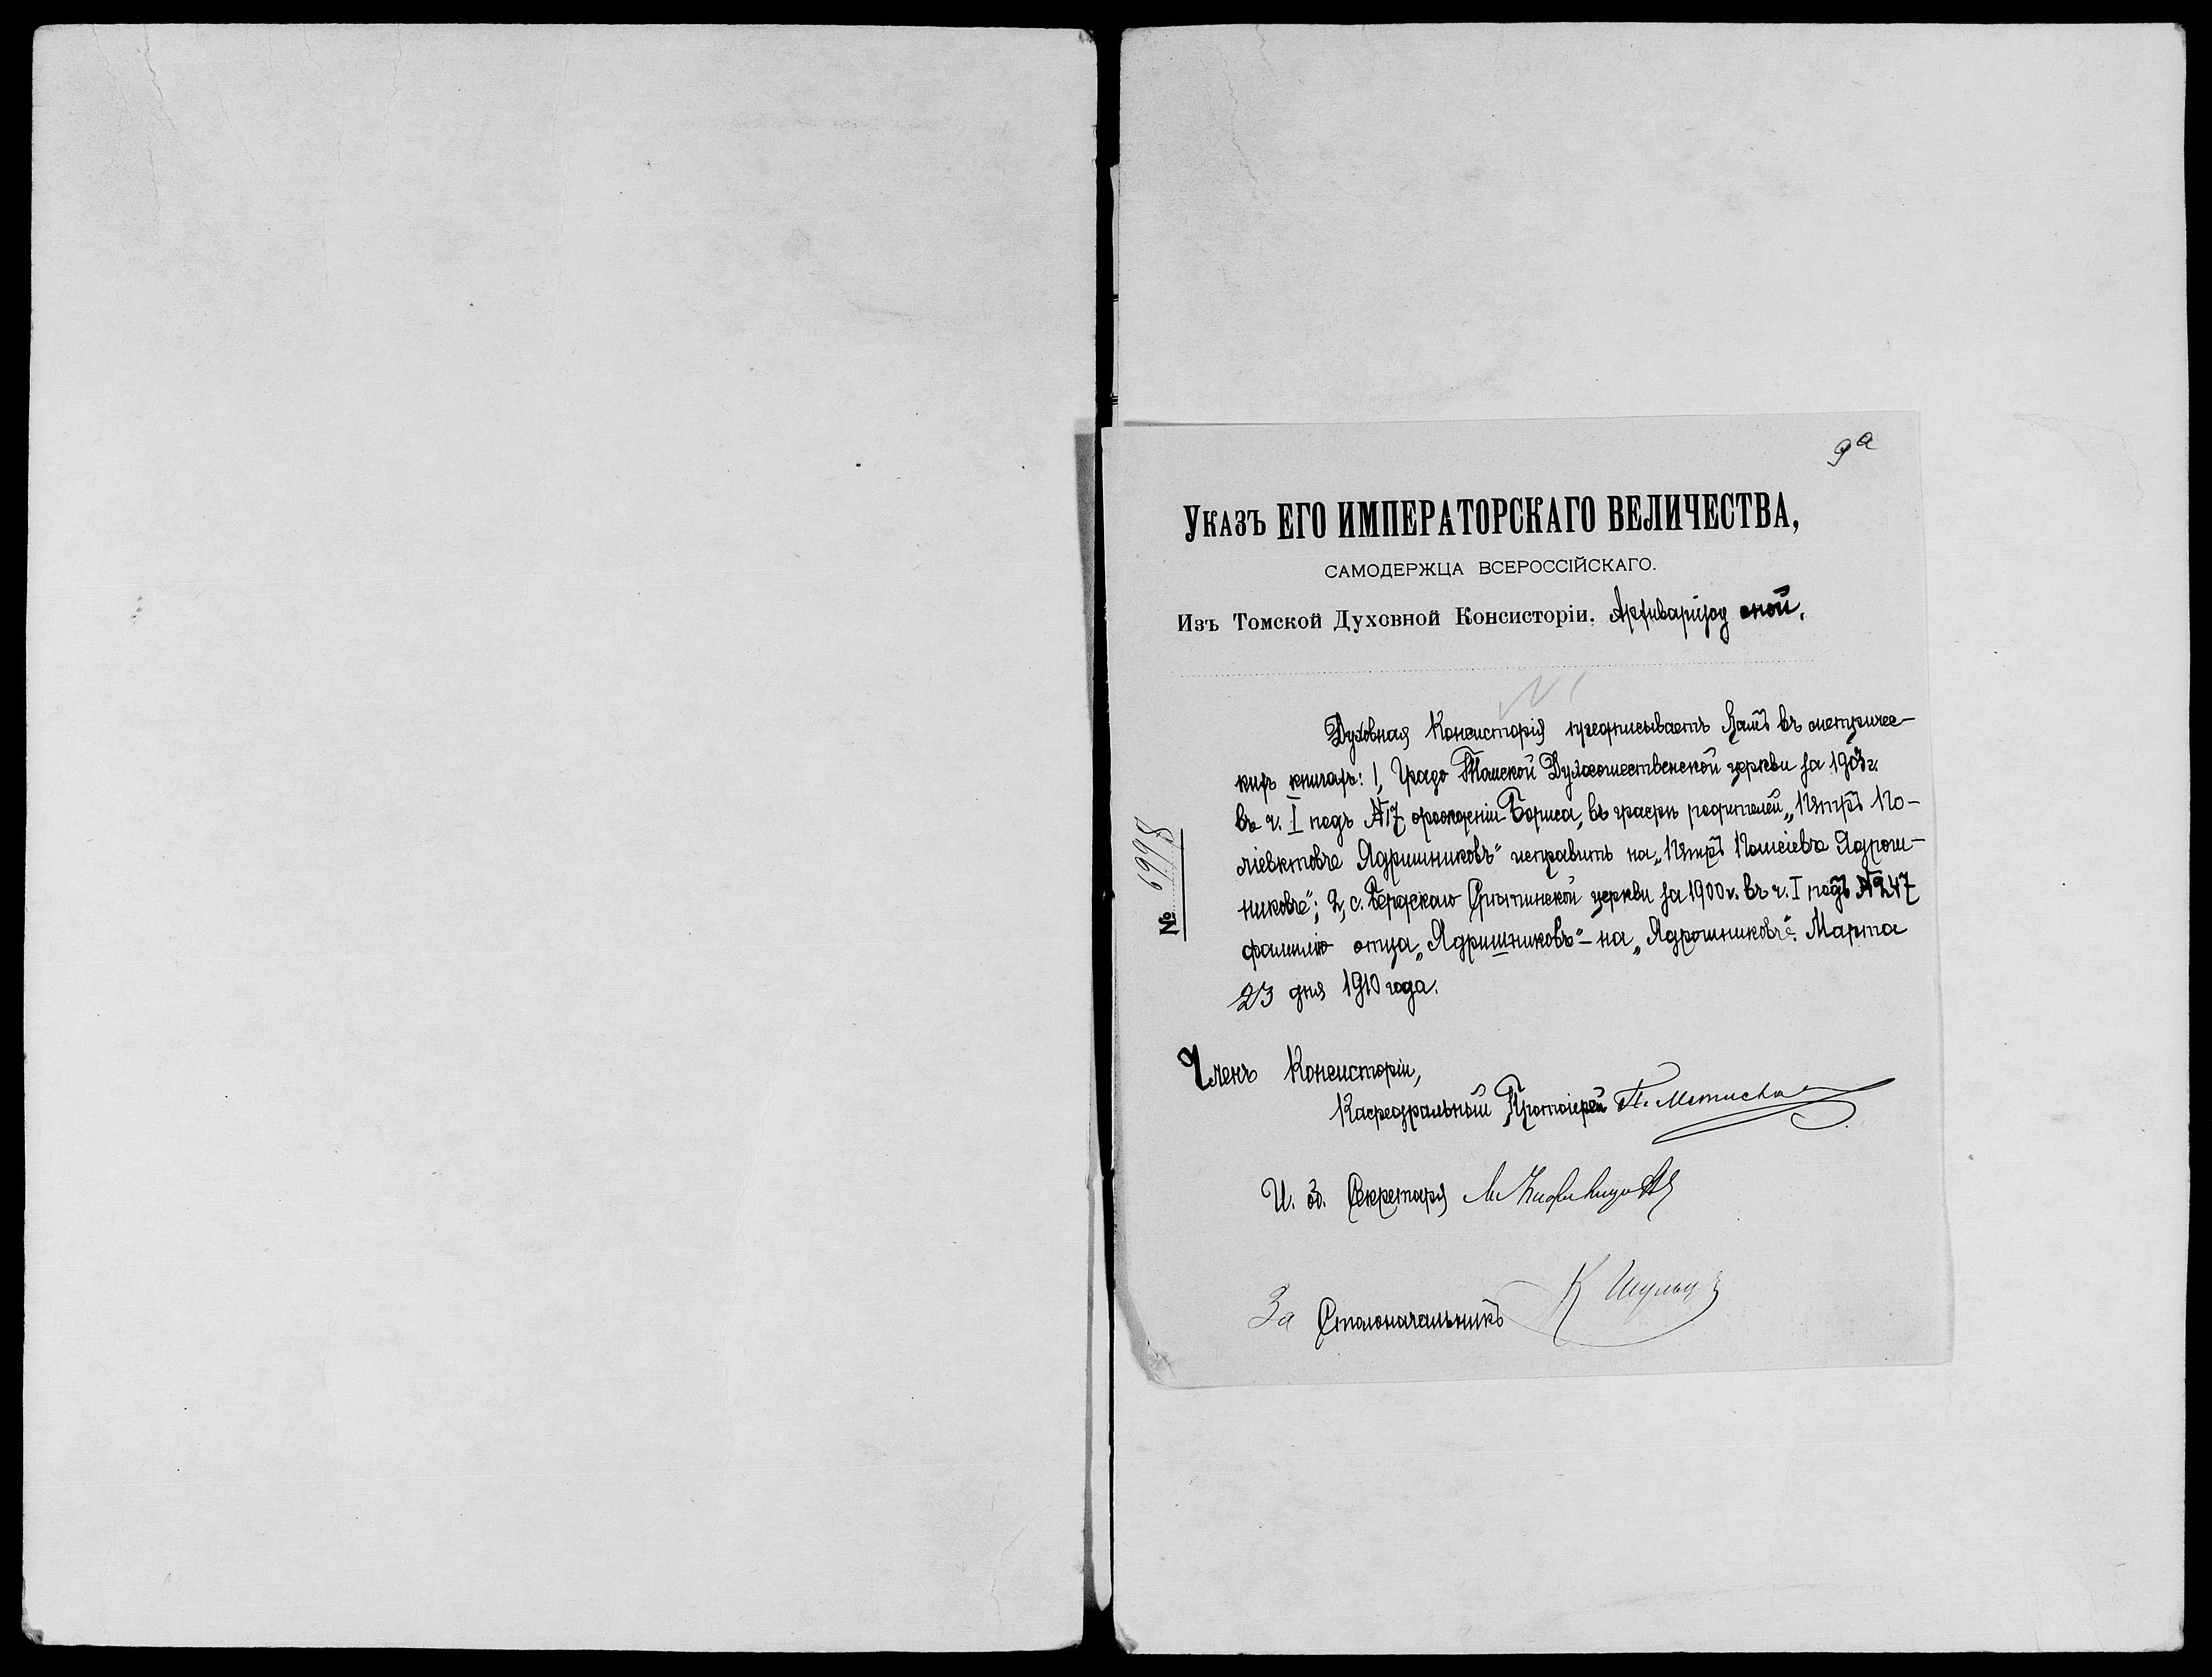 9а
Указъ ЕГО ИМПЕРАТОРСКАГО ВЕЛИЧЕСТВА,
САМОДЕРЖЦА ВСЕРОССІЙСКАГО.
Изъ Томской Духовной Консисторіи. Архиваріусу оной.
№ 6998
Духовная Консисторія предписываетъ Вамъ въ метричес-
кихъ книгахъ: 1, Градо Томской Духосошественской церкви за 1903 г.
въ ч. I подъ №17 о рожденіи Бориса, въ графѣ родителей „Петръ По-
ліевктовъ Ядришниковъ" исправить на „Петръ Поліевктовъ Ядрош-
никовъ"; 2, с. Бердскаго Срѣтинской церкви за 1900 г. въ ч. I подъ №247
фамилію отца „Ядришниковъ" – на „Ядрошниковъ". Марта
23 дня 1910 года.
Членъ Консисторіи,
Каѳедральный Протоіерей П.
И. об. Секретаря
За Столоначальникъ К Шульц